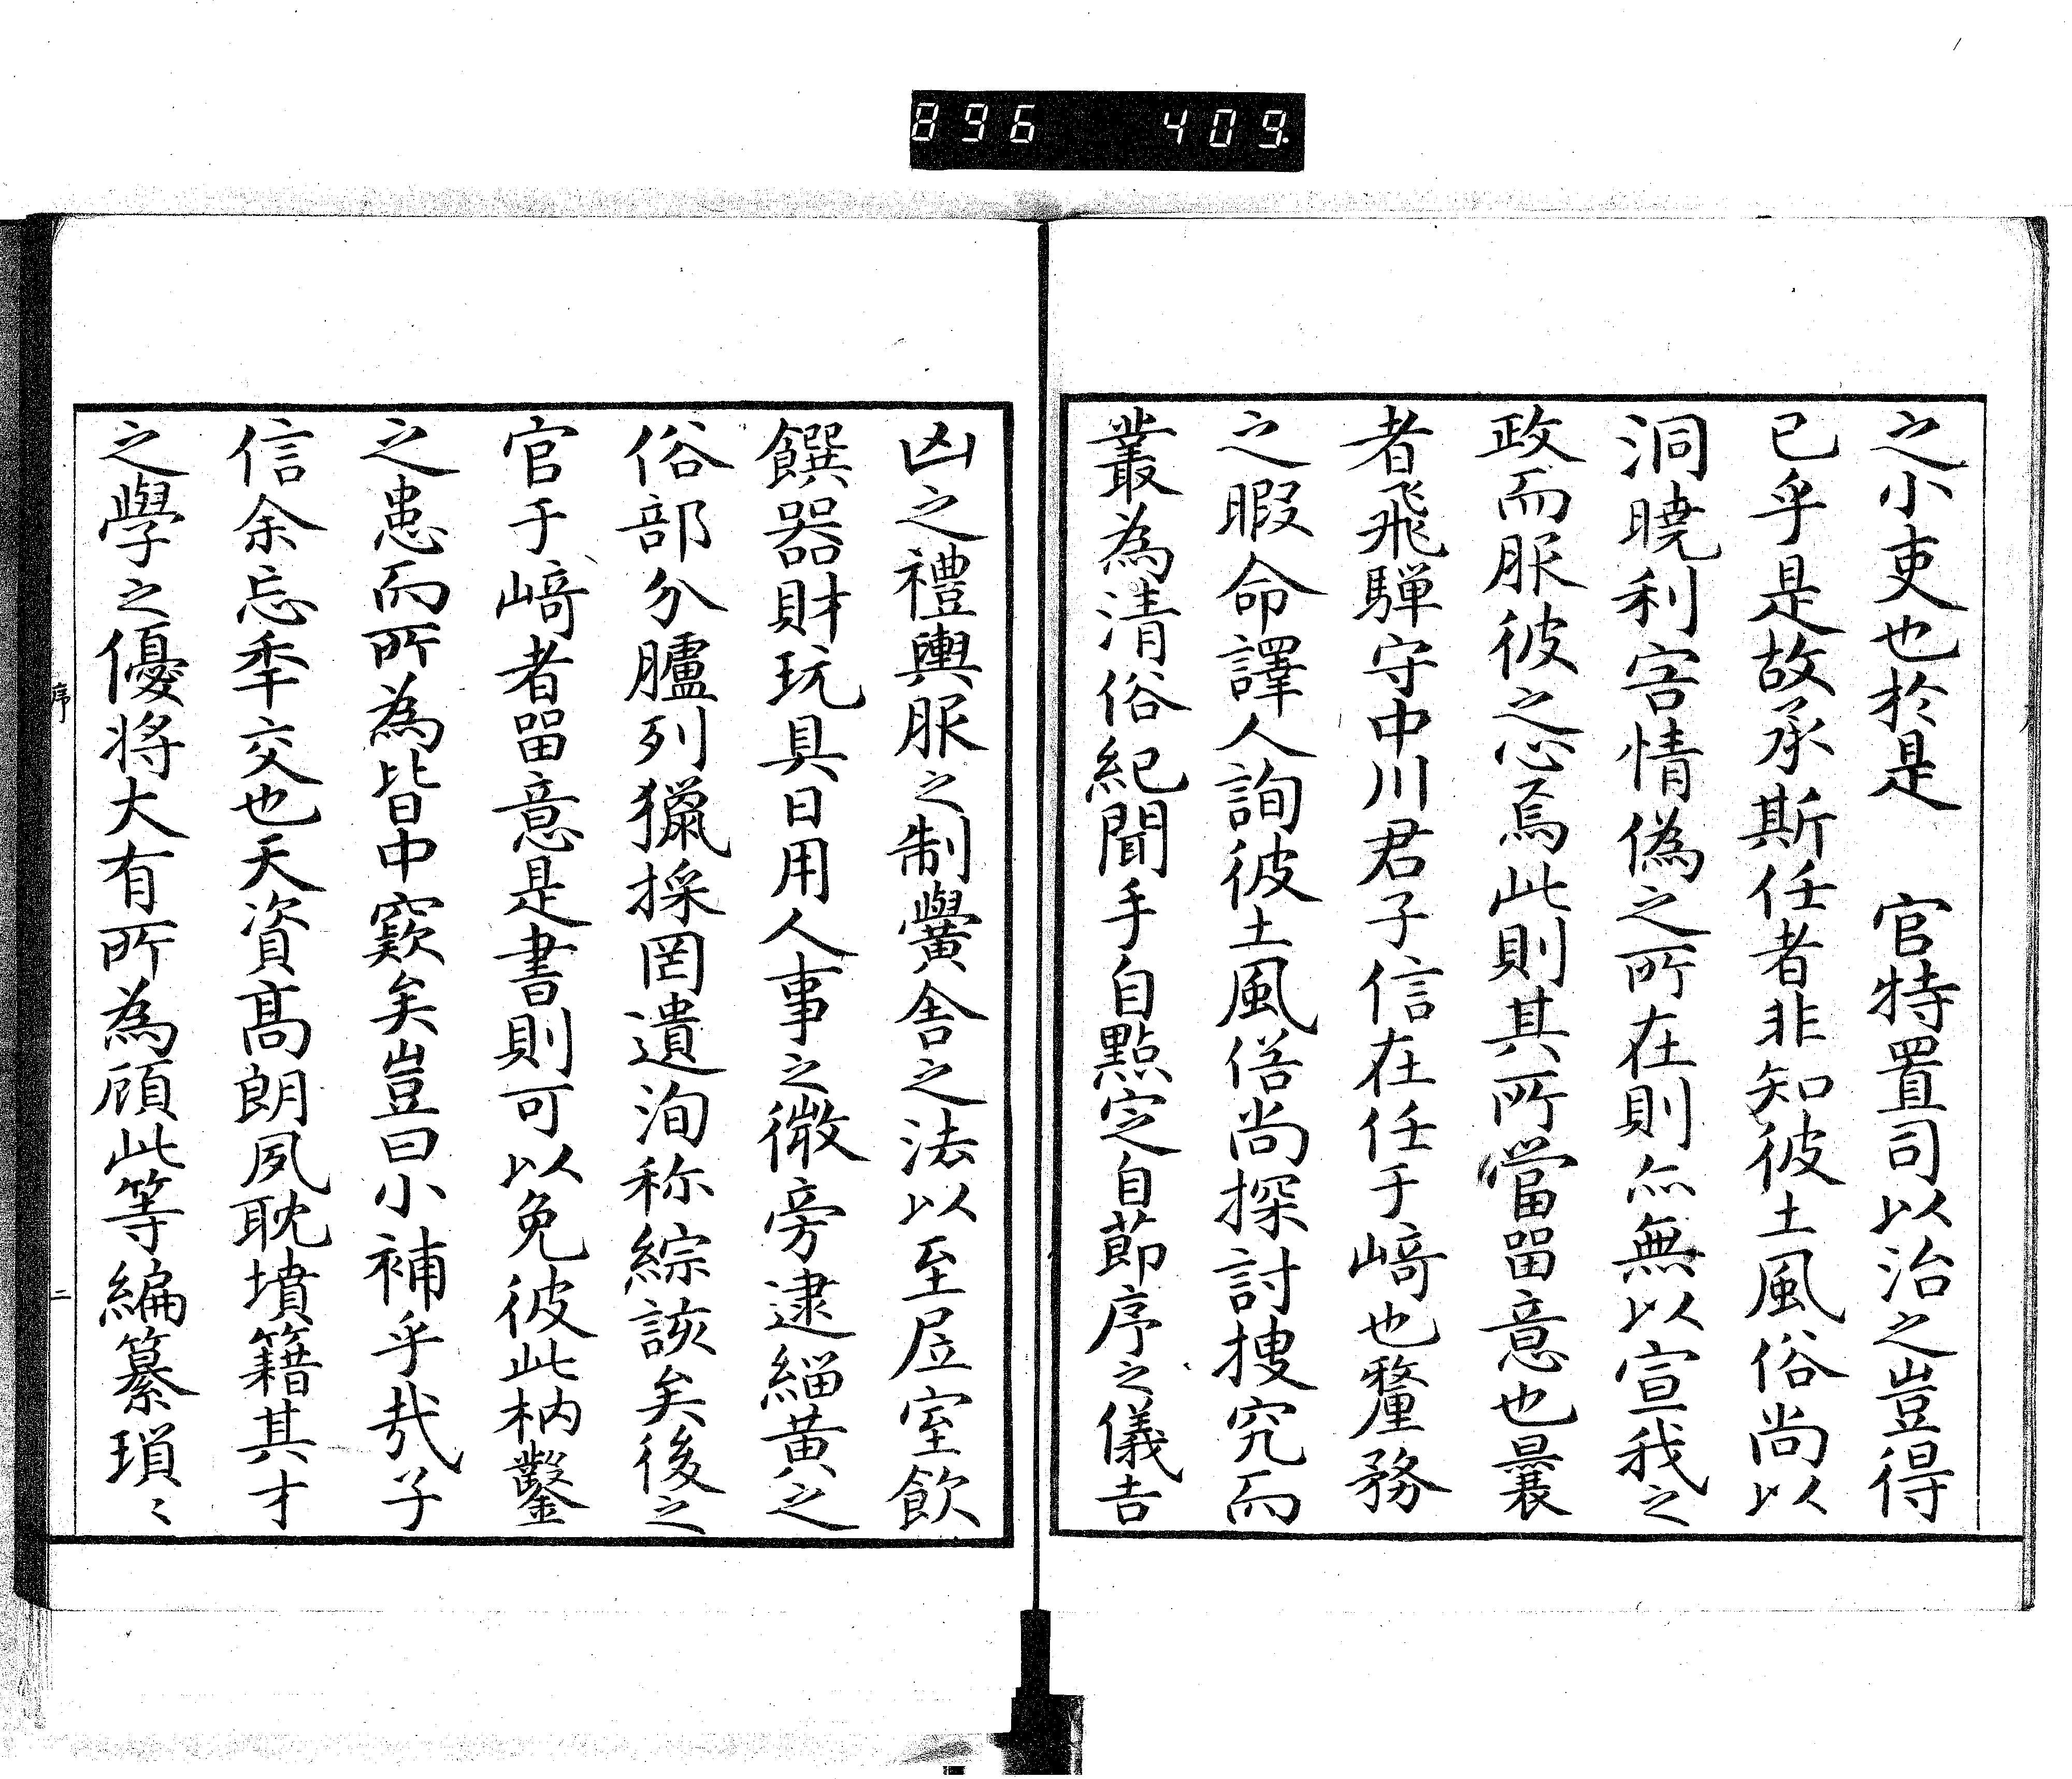 896 409
之小吏也於是　官特置司以治之豈得
已乎是故承斯任者非知彼土風俗尚以
洞曉利害情偽之所在則亦無以宣我之
政而服彼之心焉此則其所當畱意也曩
者飛騨守中川君子信在任于﨑也釐務
之暇命譯人詢彼土風俗尚探討搜究而
叢為清俗紀聞手自點定自節序之儀吉
凶之禮輿服之制黌舍之法以至居室飲
饌器財玩具日用人事之微旁逮緇黄之
俗部分臚列獵採罔遺洵称綜該矣後之
官于﨑者畱意是書則可以免彼此枘鑿
之患而所為皆中窾矣豈曰小補乎哉子
信余忘年交也天資髙朗夙耽墳籍其才
之學之優将大有所為顧此等編纂瑣〻
序
二